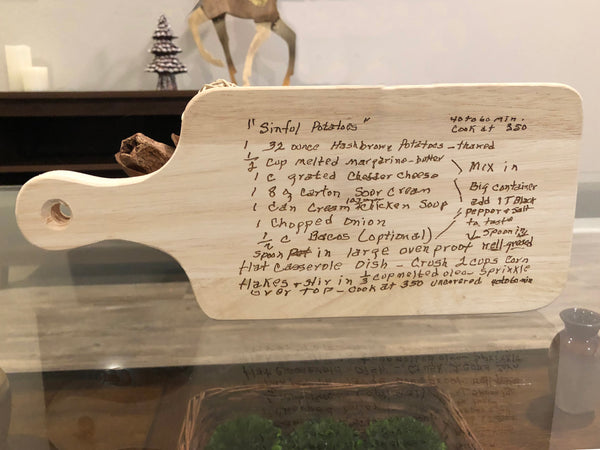 "Sinful Potatoes"
40 to 60 min.
Cook at 350
1 32 ounce Hashbrown Potatoes - thawed
1/2 cup melted margarine - butter
1 c grated Chedder cheese
1 8 oz carton Sour Cream
1 can Cream Chicken Soup
1 Chopped Onion
1/2 c Bacos (optional)
Mix in
Big container
add 1 T Black
pepper & salt
to taste
Spoon in large oven proof well greased
flat Casserole Dish - Crush 2 cups Corn
flakes + stir in 1/3 cup melted oleo Sprinkle
over Top - Cook at 350 uncovered 40 to 60 min